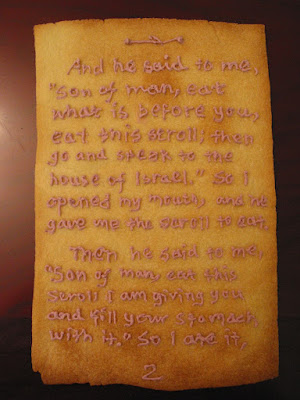 And he said to me,
"Son of man, eat
what is before you,
eat this scroll; then
go and speek to the
house of Israel." So I
opened my mouth, and he
gave me the scroll to eat.
Then he said to me,
"Son of man eat this
scroll I am giving you
and fill your stomach
with it." So I ate it,
2